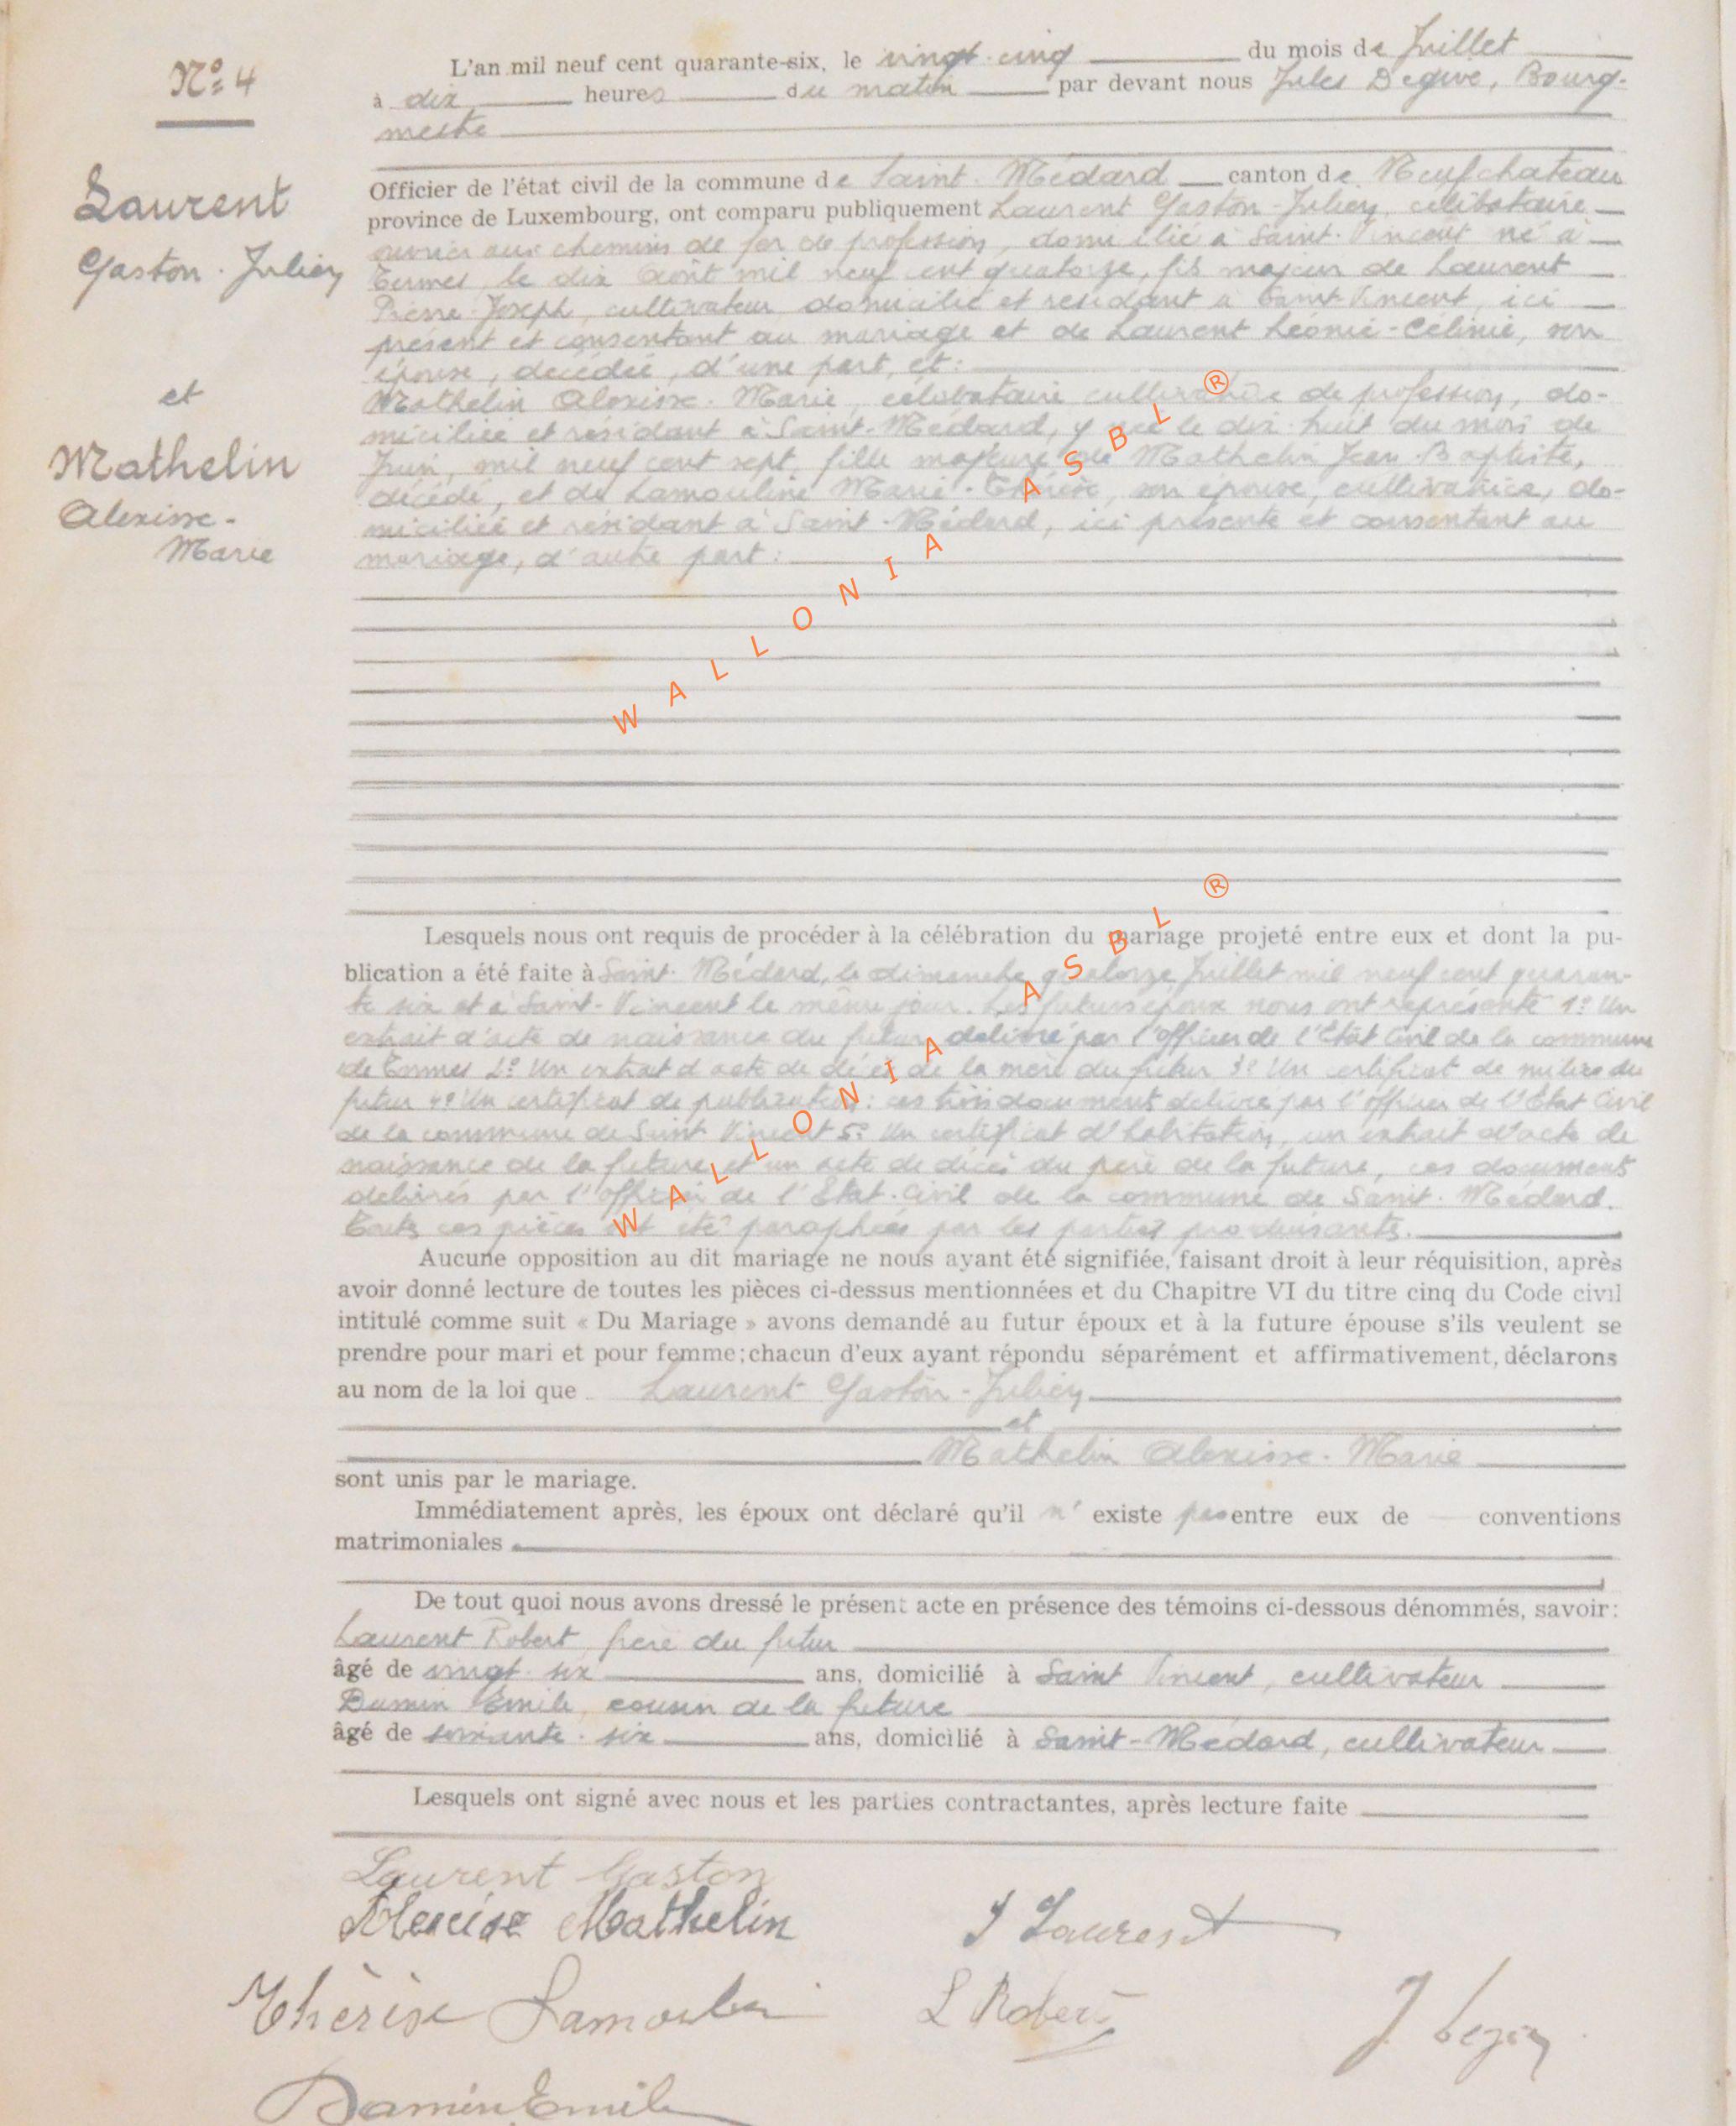 N° 4
L'an mil neuf cent quarante-six, le vingt-cinq du mois de Juillet
à dix heures du matin par devant nous Jules Degive, Bourg-
mestre
Officier de l'état civil de la commune de Saint-Médard canton de Neufchateau
province de Luxembourg, ont comparu publiquement Laurent Gaston-Julien, célibataire
ouvrier aux chemins de fer de profession, domicilié à Saint-Vincent né à
Termes, le dix Août mil neuf cent quatorze, fils majeur de Laurent
Pierre-Joseph, cultivateur domicilié et résidant à Saint-Vincent, ici
présent et consentant au mariage et de Laurent Léonie-Célinie, son
épouse, décédée, d'une part, et:
Mathelin Alexisse-Marie, célibataire cultivatrice de profession, do-
miciliée et résidant à Saint-Médard, y née le dix-huit du mois de
Juin, mil neuf cent sept, fille majeure de Mathelin Jean-Baptiste,
décédé, et de Lamouline Marie-Thérèse, son épouse, cultivatrice, do-
miciliée et résidant à Saint-Médard, ici présente et consentant au
mariage, d'autre part:
Laurent
Gaston-Julien
et
Mathelin
Alexisse-
Marie
WALLONIA ASBL ®
Lesquels nous ont requis de procéder à la célébration du mariage projeté entre eux et dont la pu-
blication a été faite à Saint-Médard, le dimanche quatorze Juillet mil neuf cent quaran-
te six et à Saint-Vincent le même jour. Les futurs époux nous ont représenté 1° Un
extrait d'acte de naissance du futur délivré par l'officier de l'Etat Civil de la commune
de Termes 2° Un extrait d'acte de décès de la mère du futur 3° Un certificat de milice du
futur 4° Un certificat de publication: ces trois documents délivrés par l'officier de l'Etat Civil
de la commune de Saint-Vincent 5° Un certificat d'habitation, un extrait d'acte de
naissance de la future et un acte de décès du père de la future, ces documents
délivrés par l'officier de l'Etat-Civil de la commune de Saint-Médard.
Toutes ces pièces ont été paraphées par les parties produisantes.
WALLONIA ASBL ®
Aucune opposition au dit mariage ne nous ayant été signifiée, faisant droit à leur réquisition, après
avoir donné lecture de toutes les pièces ci-dessus mentionnées et du Chapitre VI du titre cinq du Code civil
intitulé comme suit « Du Mariage » avons demandé au futur époux et à la future épouse s'ils veulent se
prendre pour mari et pour femme; chacun d'eux ayant répondu séparément et affirmativement, déclarons
au nom de la loi que Laurent Gaston-Julien
et
Mathelin Alexisse-Marie
sont unis par le mariage.
Immédiatement après, les époux ont déclaré qu'il n'existe pas entre eux de conventions
matrimoniales
De tout quoi nous avons dressé le présent acte en présence des témoins ci-dessous dénommés, savoir:
Laurent Robert frère du futur
âgé de vingt-six ans, domicilié à Saint Vincent, cultivateur
Damin Emile, cousin de la future
âgé de soixante-six ans, domicilié à Saint-Médard, cultivateur
Lesquels ont signé avec nous et les parties contractantes, après lecture faite
Laurent Gaston
Alexise Mathelin
J Laurent
Thérèse Lamouline
L Robert
Damin Emile